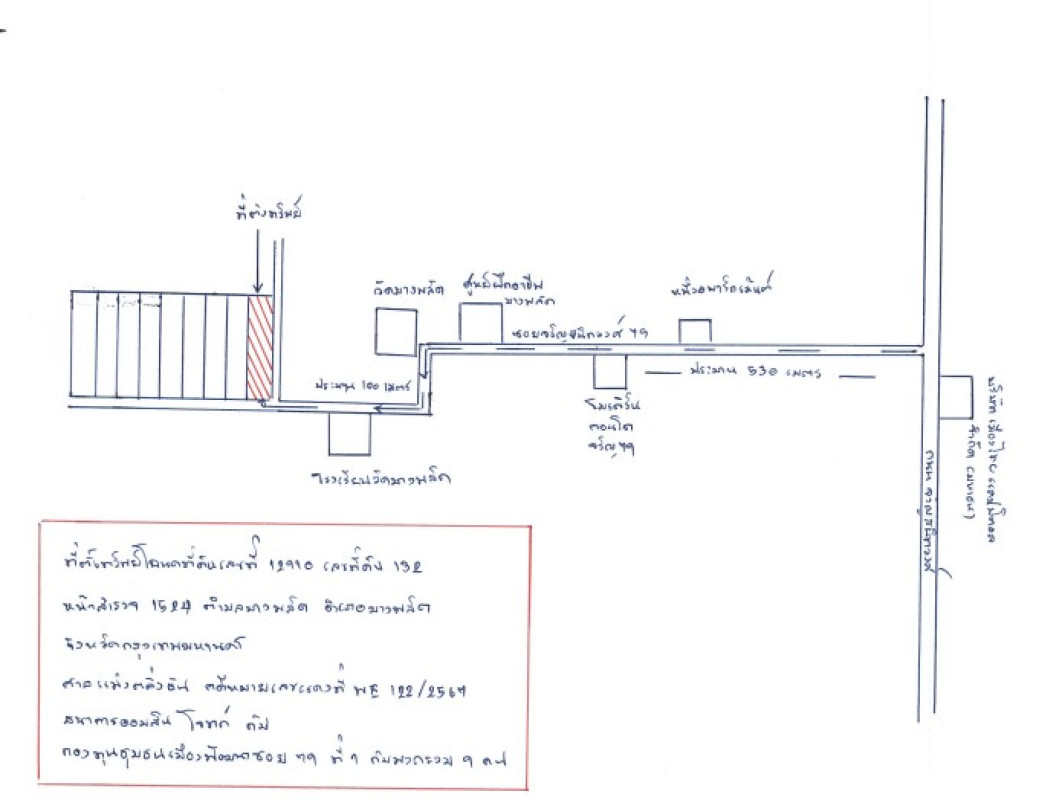 ที่ตั้งทรัพย์
วัดบางพลัด
ศูนย์ฝึกอาชีพ
บางพลัด
หนึ่งอพาร์ทเม้นท์
ซอยจรัญสนิทวงศ์ 79
ประมาณ 530 เมตร
ประมาณ 100 เมตร
โมเดิร์น
คอนโด
จรัญ 79
โรงเรียนวัดบางพลัด
บริษัท เมืองไทย แคปปิตอล
จำกัด (มหาชน)
ถนน จรัญสนิทวงศ์
ที่ตั้งทรัพย์โฉนดที่ดินเลขที่ 12910 เลขที่ดิน 132
หน้าสำรวจ 1524 ตำบลบางพลัด อำเภอบางพลัด
จังหวัดกรุงเทพมหานคร
ศาลแพ่งตลิ่งชัน คดีหมายเลขแดงที่ พE 122/2567
ธนาคารออมสิน โจทก์ กับ
กองทุนชุมชนเมืองพัฒนาซอย 79 ที่ 1 กับพวกรวม 9 คน